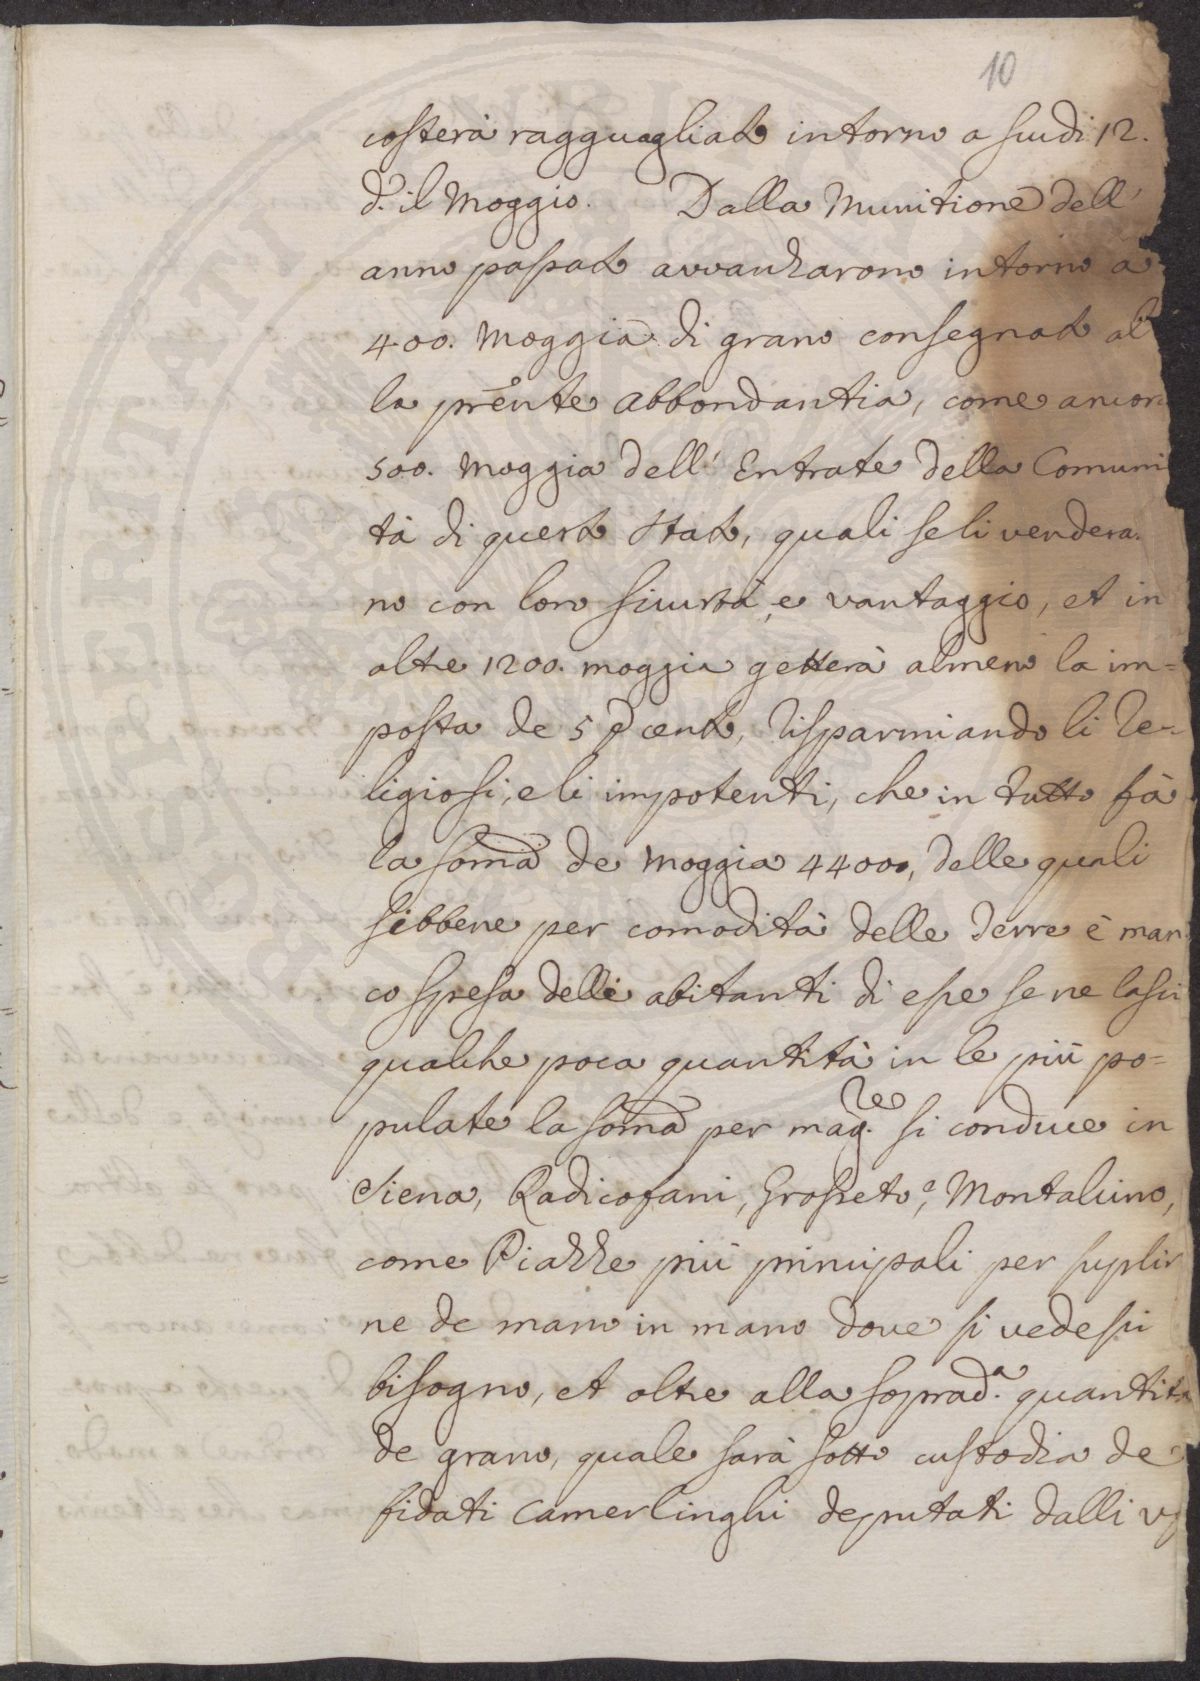 10
costerà ragguagliato intorno a scudi 12.
d. il Moggio. Dalla Munitione dell'
anno passato avvanzarono intorno à
400. Moggia di grano consegnato al
la pr̃ente Abbondantia, come ancor
500. moggia dell' Entrate della Comuni
tà di questo Stato, quali se li vendera.
no con loro sicurtà, e vantaggio, et in
oltre 1200. moggia getterà almeno la im=
posta de 5 p cento, risparmiando li Re=
ligiosi, e li impotenti, che in tutto fà
la som̃a de moggia 44000, delle quali
sebbene per comodità delle Terre è man
co spesa delli abitanti di esse se ne lasci
qualche poca quantità in le più po=
pulate la som̃a per mag.re si conduce in
Siena, Radicofani, Grosseto, e Montalcino,
come Piazze più principali per suplir
ne de mano in mano dove si vedessi
bisogno, et oltre alla soprad.a quantità
de grano, quale sarà sotto custodia de
fidati Camerlinghi deputati dalli